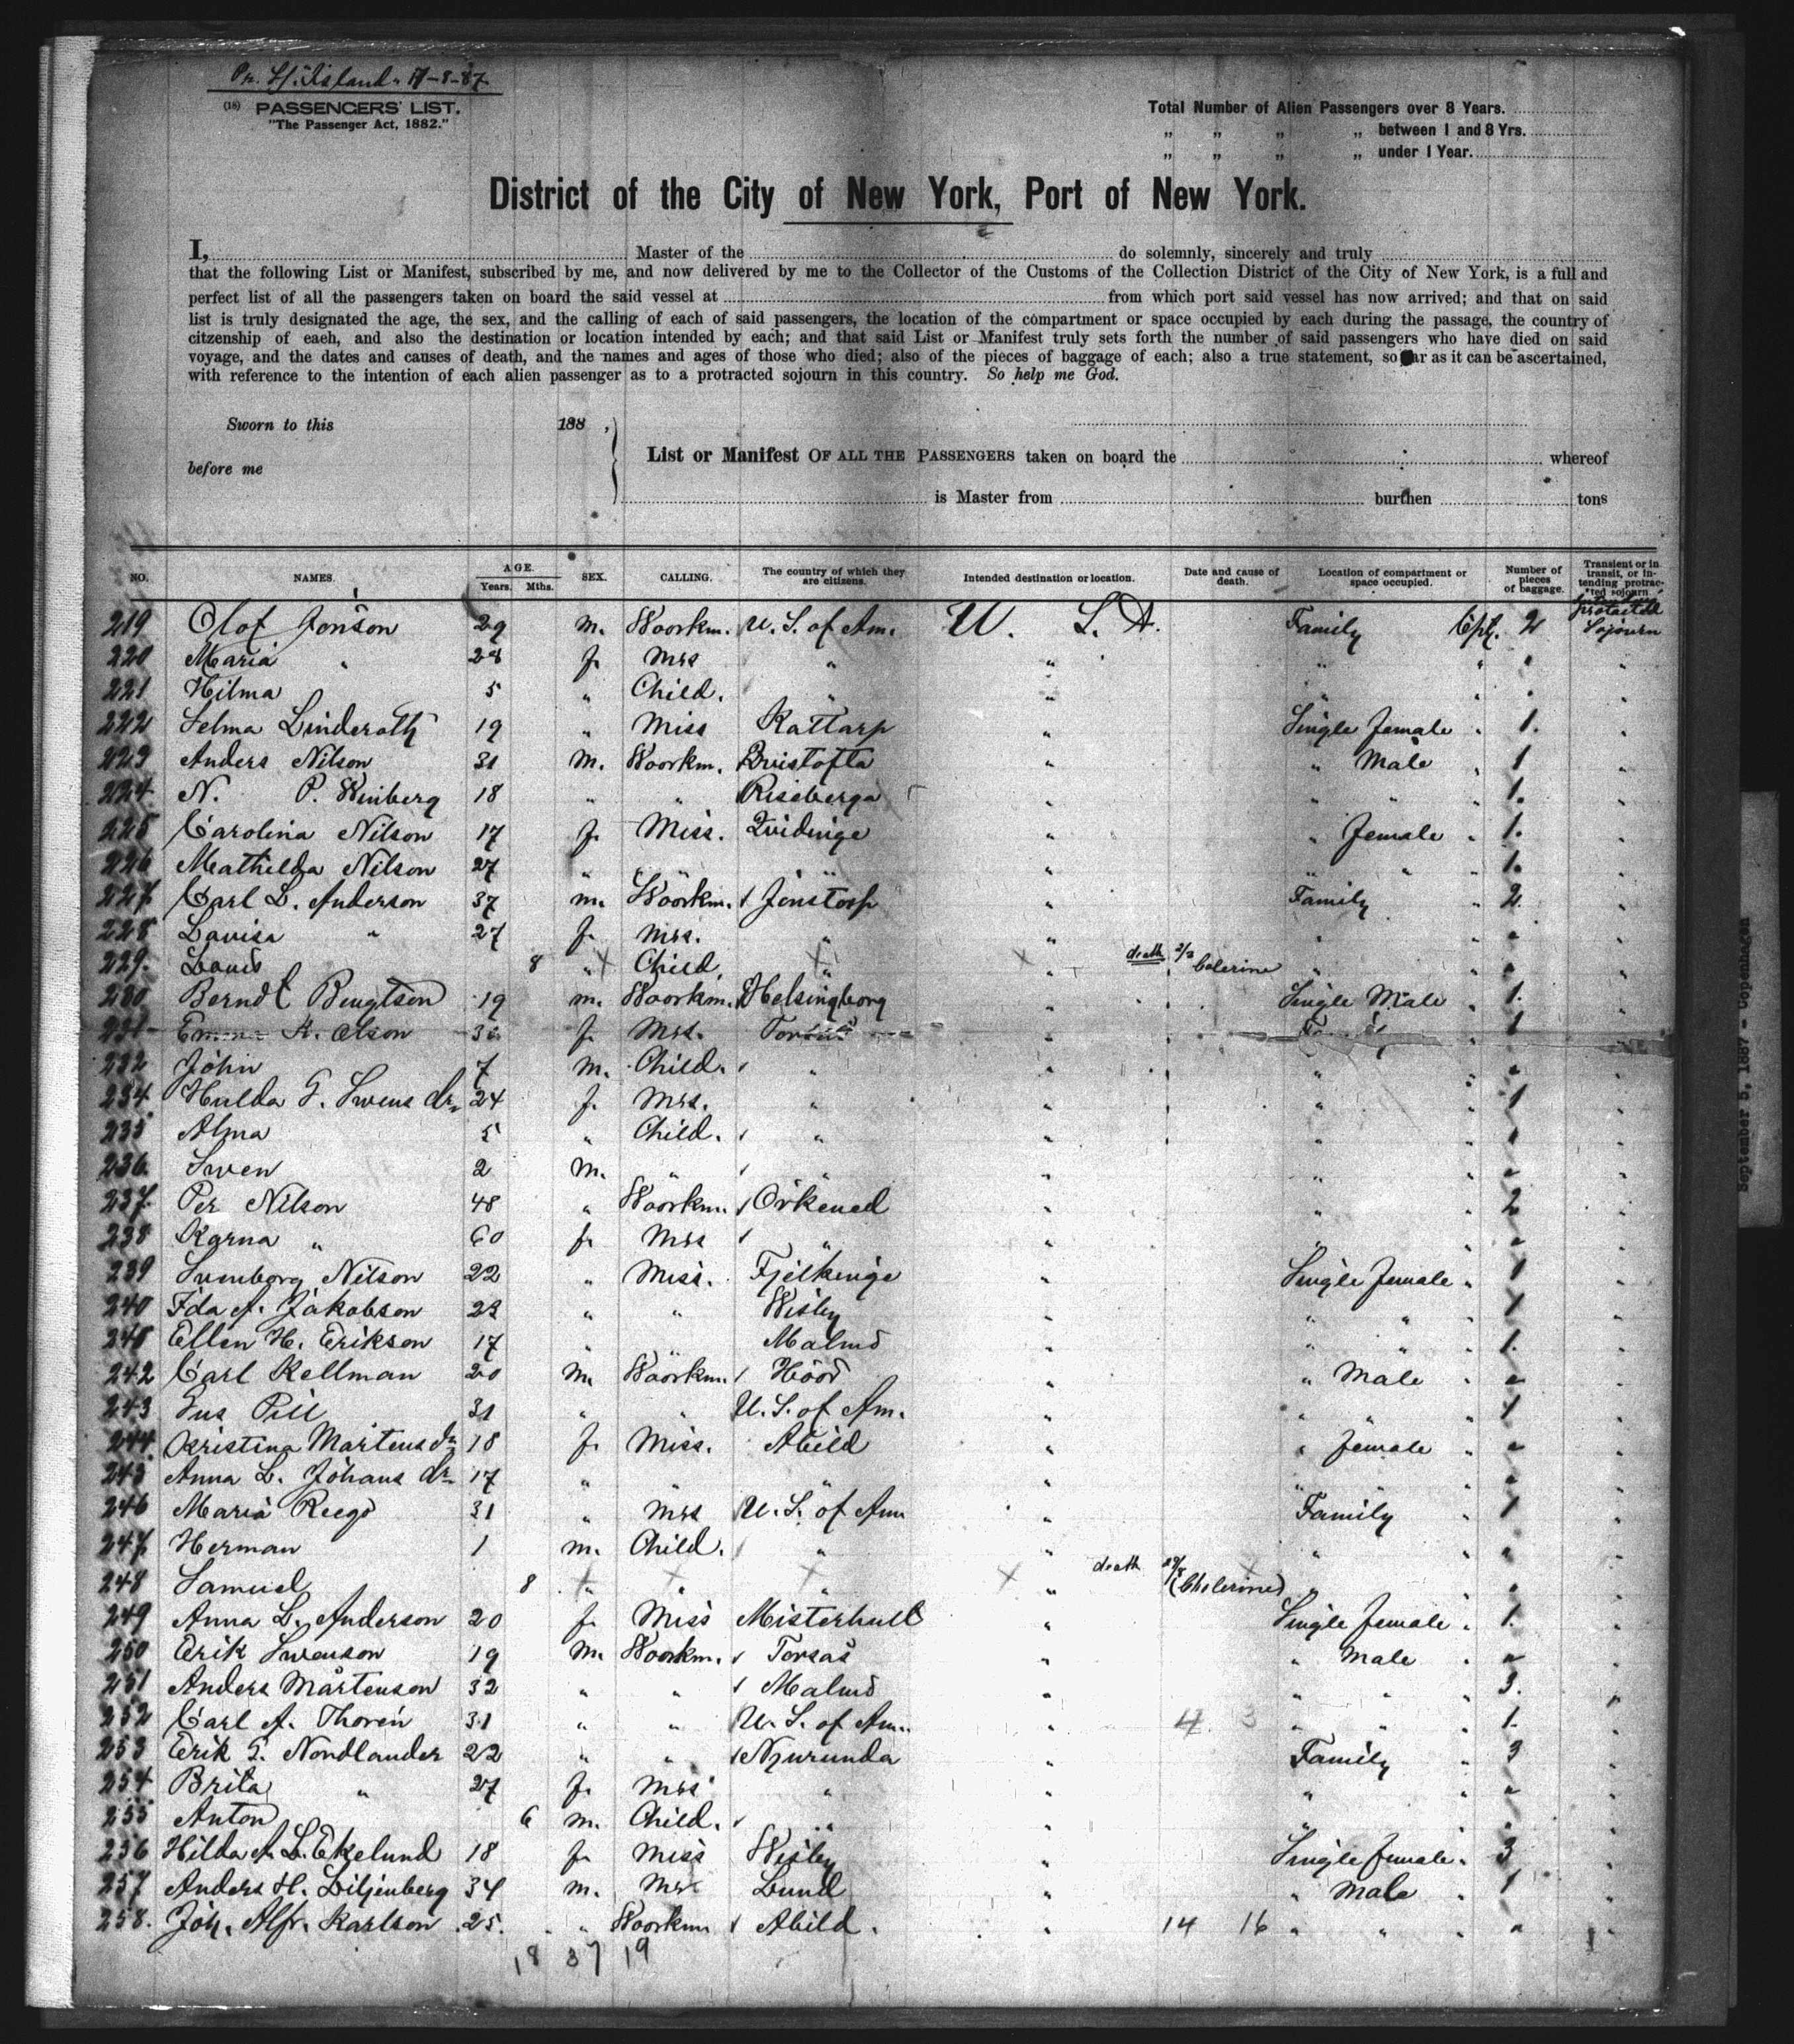 Pr. "Island" 17-8-87.
(18) PASSENGERS' LIST.
"The Passenger Act, 1882."
Total Number of Alien Passengers over 8 Years.
„ „ „ „ between 1 and 8 Yrs.
„ „ „ „ under 1 Year.
District of the City of New York, Port of New York.
I, Master of the do solemnly, sincerely and truly
that the following List or Manifest, subscribed by me, and now delivered by me to the Collector of the Customs of the Collection District of the City of New York, is a full and
perfect list of all the passengers taken on board the said vessel at from which port said vessel has now arrived; and that on said
list is truly designated the age, the sex, and the calling of each of said passengers, the location of the compartment or space occupied by each during the passage, the country of
citzenship of eaeh, and also the destination or location intended by each; and that said List or Manifest truly sets forth the number of said passengers who have died on said
voyage, and the dates and causes of death, and the names and ages of those who died; also of the pieces of baggage of each; also a true statement, so far as it can be ascertained,
with reference to the intention of each alien passenger as to a protracted sojourn in this country. So help me God.
Sworn to this 188 ,
before me
List or Manifest OF ALL THE PASSENGERS taken on board the whereof
is Master from burthen tons
NO. NAMES. AGE. Years. Mths. SEX. CALLING. The country of which they are citizens. Intended destination or location. Date and cause of death. Location of compartment or space occupied. Number of pieces of baggage. Transient or in transit, or intending protracted sojourn
219 Olof Jonson 29 m. Woorkm. U. S. of Am. U. S. A. Family Cpt. 2 protacted Sojourn
220 Maria " 28 f. Mrs " " " " " "
221 Hilma 5 " Child. " " " " " "
222 Selma Linderoth 19 " Miss Kattarp " Single female " 1. "
223 Anders Nilson 31 m. Woorkm. Qvistofta " " Male " 1 "
224 N. P. Winberg 18 " " Riseberga " " " " 1. "
225 Carolina Nilson 17 f. Miss. Qvidinge " " female " 1. "
226 Mathilda Nilson 27 " " " " " " " 1. "
227 Carl L. Anderson 37 m. Woorkm. Jonstorp " Family " 2 "
228 Lovisa " 27 f. Mrs. " " " " " "
229. Louis 8 " Child, " " death 2/9 Colerine " " " "
230 Berndt Bengtson 19 m. Woorkm. Helsingborg " Single Male " 1. "
231 Emma K. Olson 36 f. Mrs. Torsås " Family " 1 "
232 John 7 m. Child. " " " " " "
234. Hulda G. Swens dr. 24 f. Mrs. " " " " 1 "
235 Alma 5 " Child. " " " " " "
236 Swen 2 m. " " " " " " "
237. Per Nilson 48 " Woorkm. Örkened " " " 2 "
238 Karna " 60 f. Mrs " " " " " "
239 Svenborg Nilson 22 " Miss. Fjelkinge " Single female " 1 "
240 Ida A. Jakobson 23 " " Wisby " " " " 1 "
241 Ellen H. Erikson 17 " Malmö " " " " 1. "
242 Carl Kellman 20 m. Woorkm. Höör " " Male " " "
243 Gus Pill 31 " " U. S. of Am. " " " 1 "
244 Kristina Martens dr. 18 f. Miss. Abild " " female " " "
245 Anna L. Johans dr. 17 " " " " " " " " "
246 Maria Reego 31 " Mrs U. S. of Am " Family " 1 "
247. Herman 1 m. Child. " " " " " "
248 Samuel 8 " " " " death 29/8 (Cholerine) " " "
249 Anna L. Anderson 20 f. Miss Misterhult " Single female " 1. "
250 Erik Swenson 19 m. Woorkm. Torsås " " Male " " "
251 Anders Mårtenson 32 " " Malmö " " " " 3. "
252 Carl A. Thorén 31 " " U. S. of Am. " 4 3 " " " 1. "
253 Erik G. Nordlander 22 " " Njurunda " Family " 3 "
254 Brita " 27 f. Mrs " " " " " "
255 Anton 6 m. Child. " " " " " "
256 Hilda A. L. Ekelund 18 f. Miss Wisby " Single female " 3 "
257 Anders H. Liljenberg 34 m. Mr Lund " " Male " 1 "
258. Joh. Alfr. Karlson 25. " Woorkm Abild. " 14 16 " " " " "
18 37 19
September 5, 1887 - Copenhagen